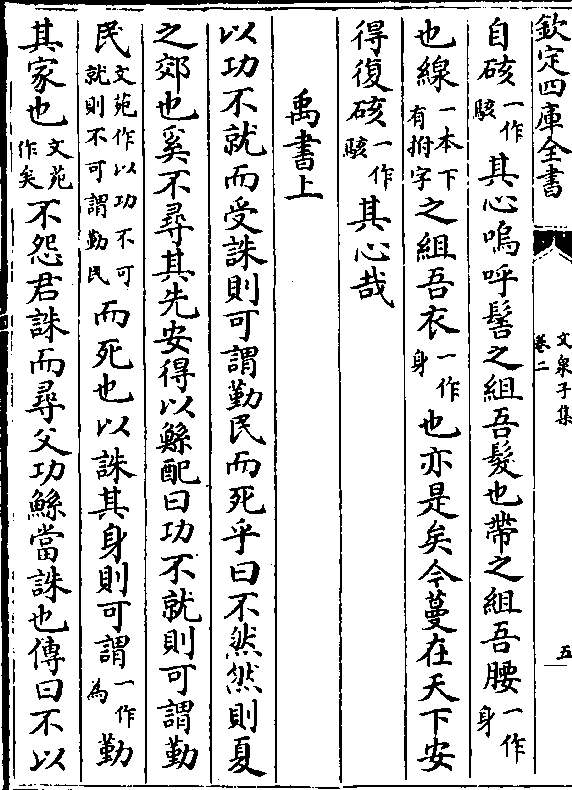 欽定四庫全書
文泉子集
卷二
五
自硋一作駭其心嗚呼髻之組吾髮也帶之組吾腰一作身
也線一本下有拊字之組吾衣一作身也亦是矣今蔓在天下安
得復硋一作駭其心哉
禹書上
以功不就而受誅則可謂勤民而死乎曰不然然則夏
之郊也奚不尋其先安得以鯀配曰功不就則可謂勤
民文苑作以功不可就則不可謂勤民而死也以誅其身則可謂一作為勤
其家也文苑作矣不怨君誅而尋父功鯀當誅也傳曰不以